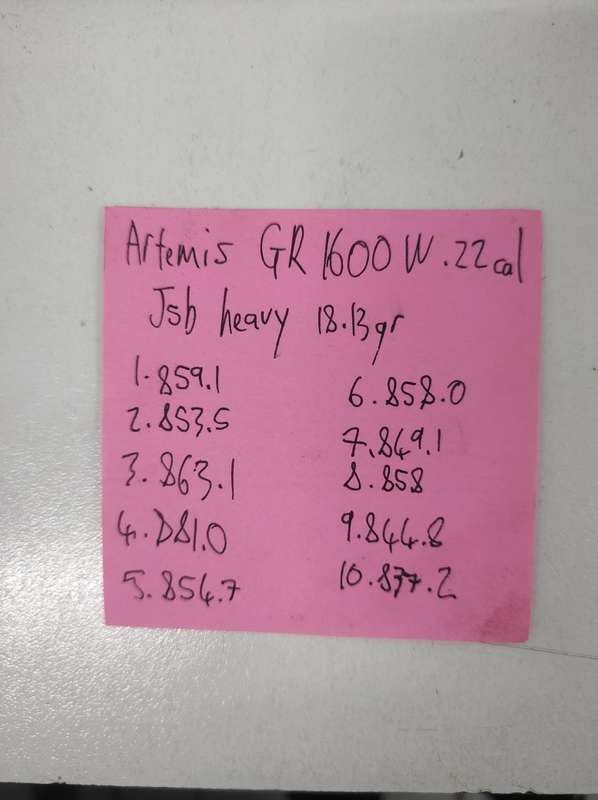 Artemis GR 1600W .22 cal
Jsb heavy 18.13gr
1. 859.1
2. 853.5
3. 863.1
4. 881.0
5. 854.7
6. 858.0
7. 849.1
8. 858
9. 844.8
10. 837.2